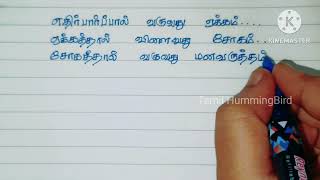 எதிர்பார்ப்பால் வருவது ஏக்கம்....
ஏக்கத்தால் விளைவது சோகம்...
சோகத்தால் வருவது மனவருத்தம்
Tamil HummingBird
Made with
KINEMASTER